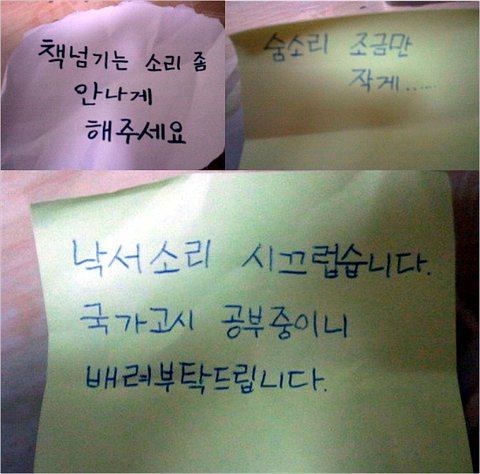 책넘기는 소리 좀
안나게
해주세요
숨소리 조금만
작게.....
낙서소리 시끄럽습니다.
국가고시 공부중이니
배려부탁드립니다.